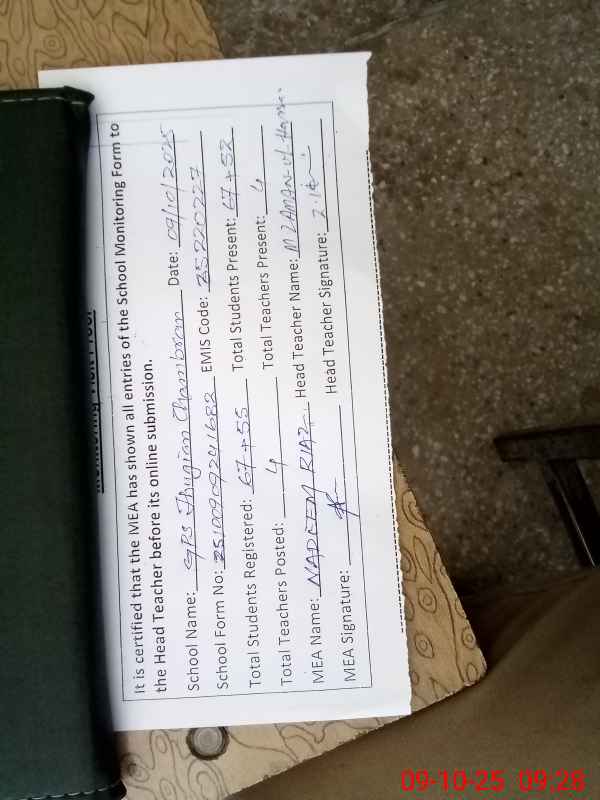 It is certified that the MEA has shown all entries of the School Monitoring Form to
the Head Teacher before its online submission.
School Name: GPS Jhugian Date: 09/10/2025
School Form No: EMIS Code: 35220227
Total Students Registered: 67+55 Total Students Present: 67+52
Total Teachers Posted: 4 Total Teachers Present: 4
MEA Name: NADEEM RIAZ Head Teacher Name: M ZAMAN-ul-
MEA Signature: Head Teacher Signature:
09-10-25 09:28